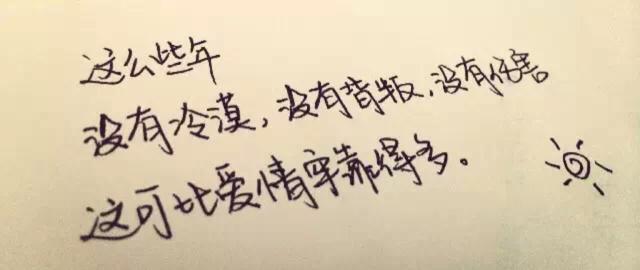 这么些年
没有冷漠，没有背叛，没有伤害
这可比爱情牢靠得多。